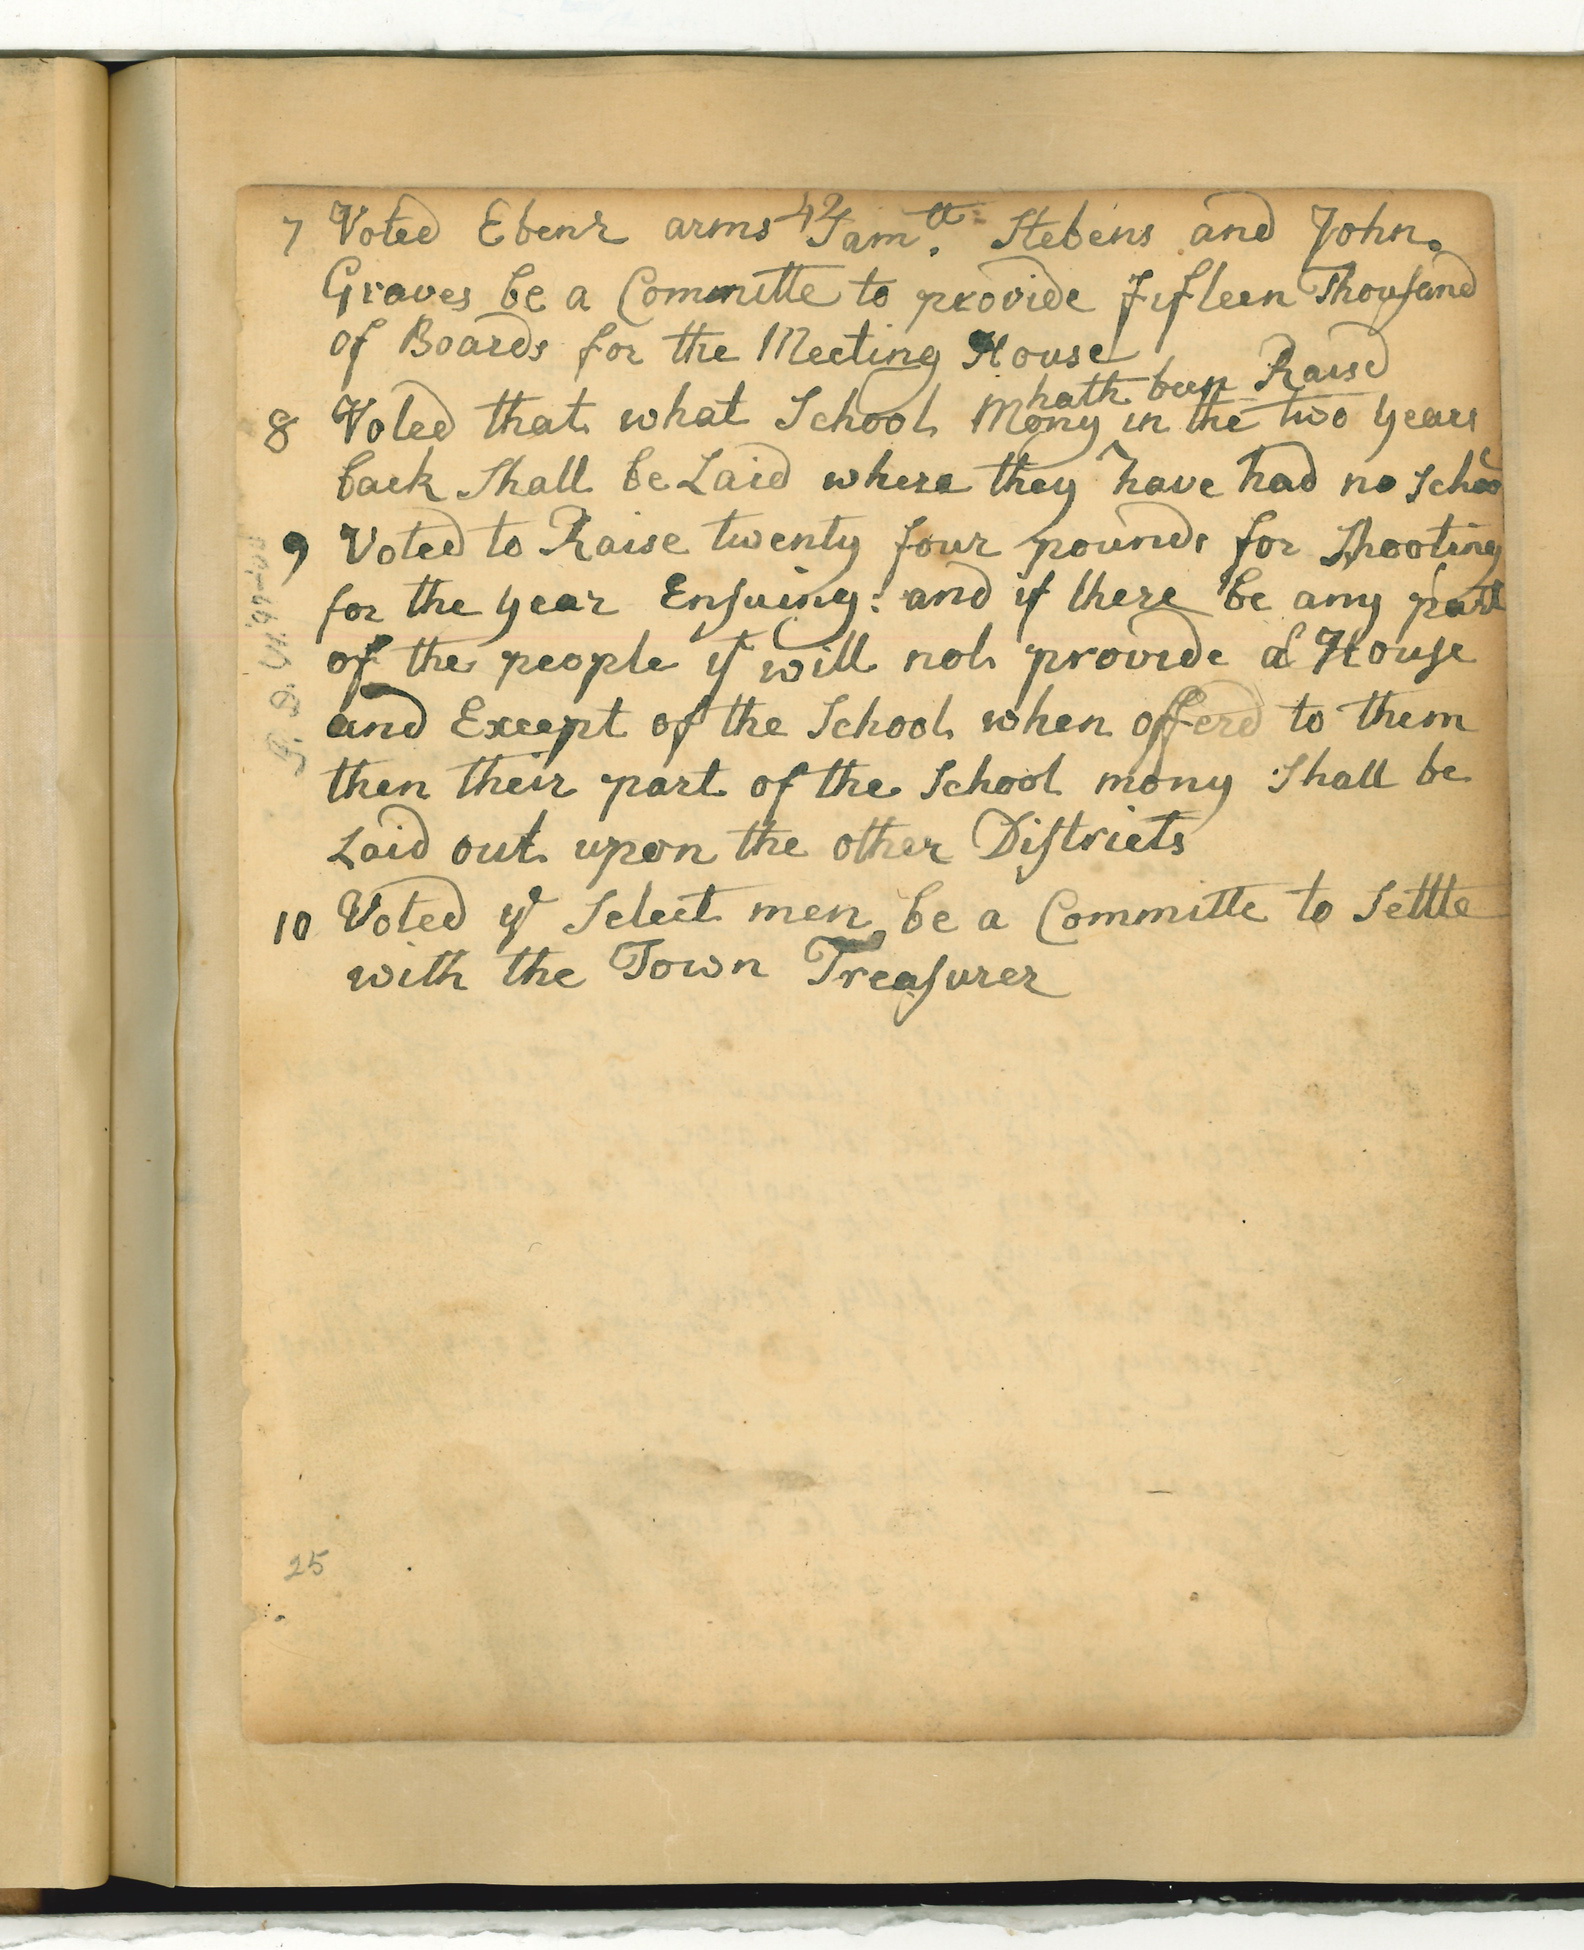 42
7 Voted Ebenr arms Samll Stebens and John
Graves be a Committe to provide fifteen Thousand
of Boards for the Meeting House
hath been Raisd
8 Voted that what School Mony in the two years
back Shall be Laid where they have had no School
9 Voted to Raise twenty four pounds for Shooting
for the year Ensuing: and if there be any part
of the people yt will not provide a House
and Except of the School when offerd to them
then their part of the School mony Shall be
Laid out upon the other Districts
10 Voted ye Select men be a Committe to Settle
with the Town Treasurer
25